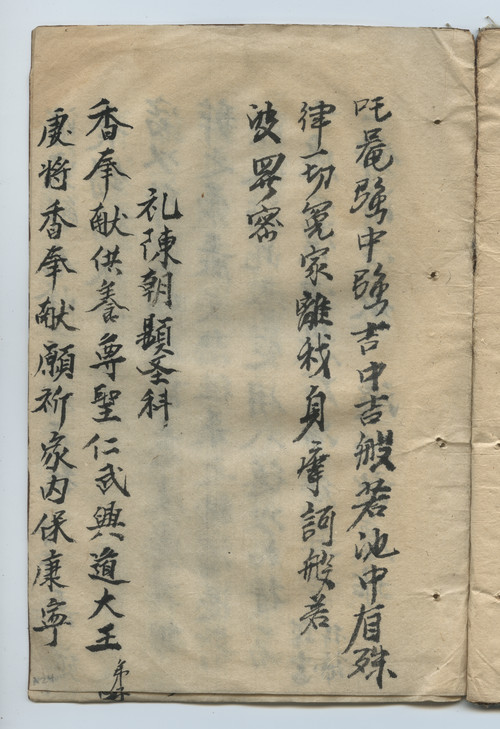 吒菴強中強吉中吉般若池中有殊
律一切冤家離我身摩訶般若
波羅密
礼陳朝顕圣科
香奉献供養尊聖仁武興道大王
虔将香奉献願祈家内保康寧